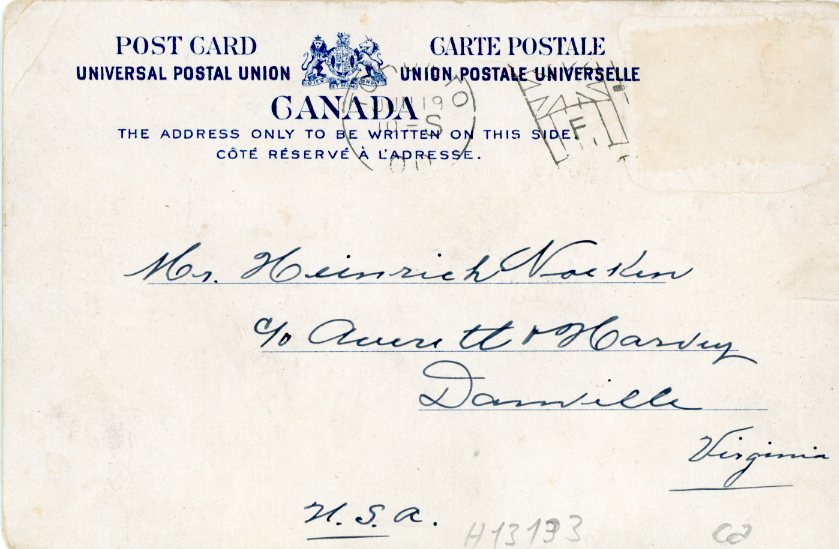 POST CARD CARTE POSTALE
UNIVERSAL POSTAL UNION UNION POSTALE UNIVERSELLE
CANADA
THE ADDRESS ONLY TO BE WRITTEN ON THIS SIDE.
CÔTÉ RÉSERVÉ À L'ADRESSE.
JUN 19
S
F
Mr. Heinrich Noeken
c/o Averett & Harvey
Danville
Virginia
U.S.A.
H13133 Ca